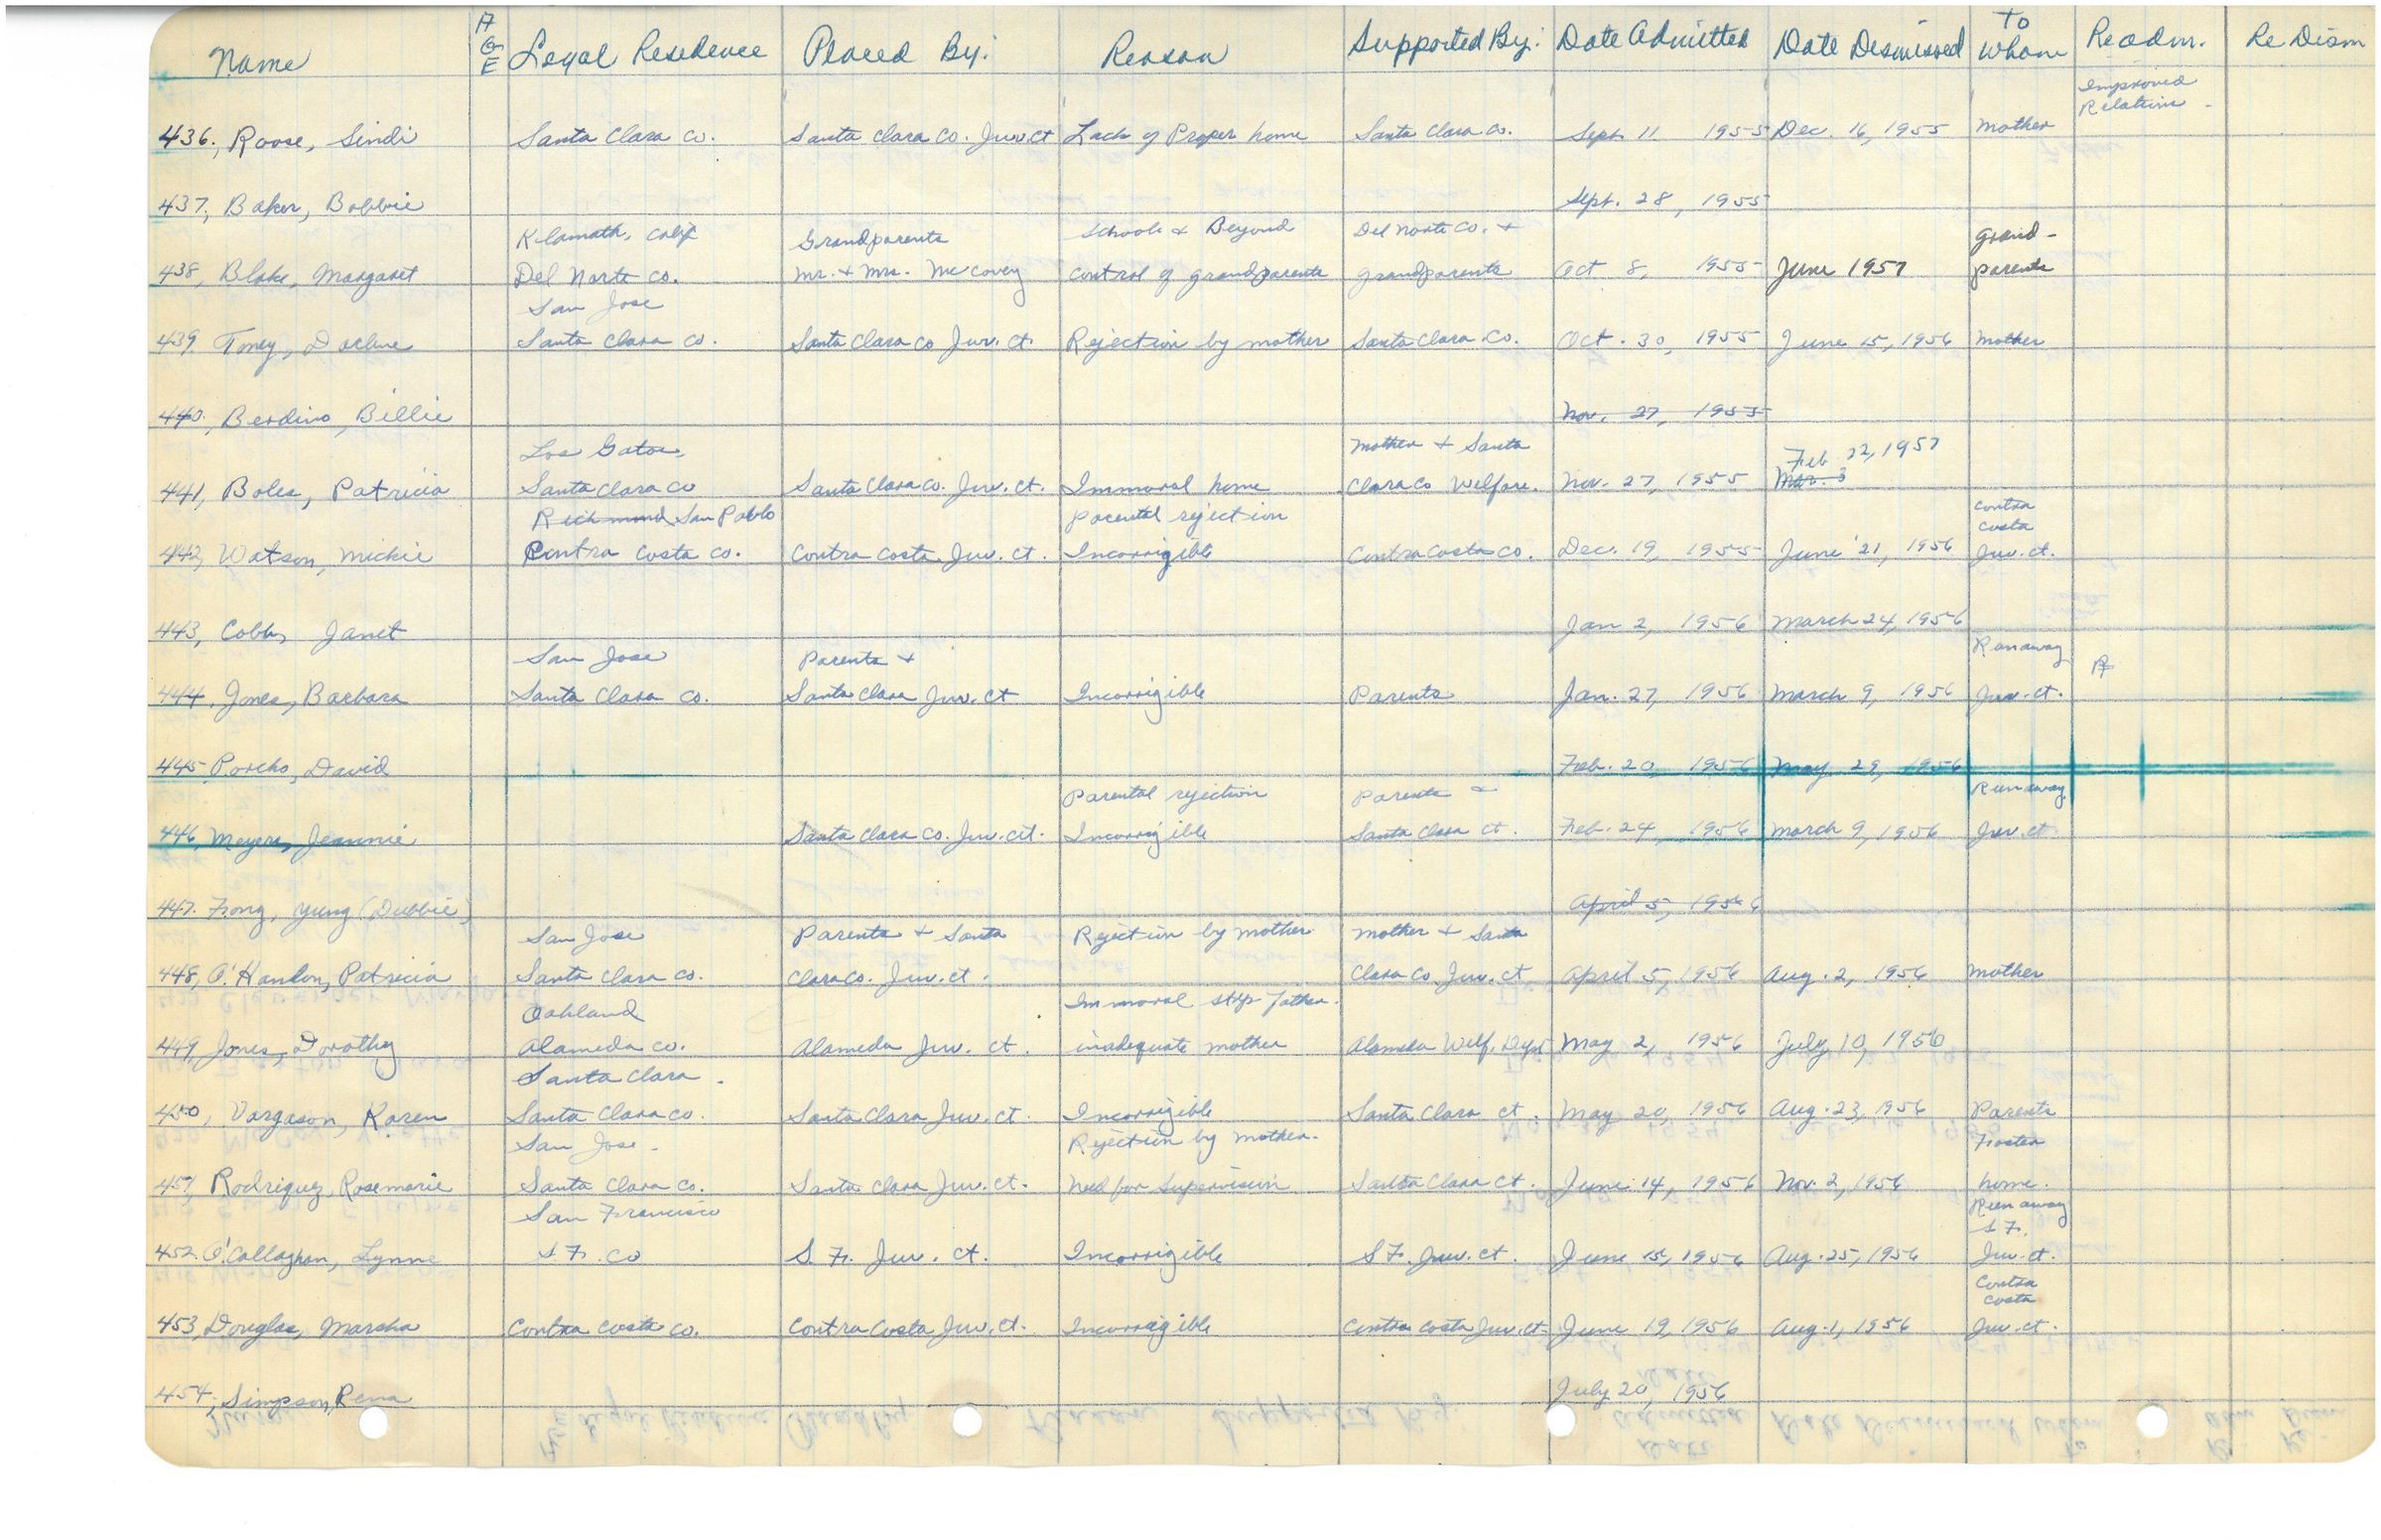 Name AGE Legal Residence Placed By: Reason Supported By: Date Admitted Date Dismissed To Whom Readm. Re Dism
Improved
Relations
436., Roose, Sindi Santa Clara Co. Santa Clara Co. Juv. Ct Lack of Proper home Santa Clara Co. Sept. 11 1955 Dec. 16, 1955 Mother
437, Baker, Bobbie Sept. 28, 1955
Klamath, Calif Grandparents School & Beyond Del Norte Co. & Grand-
438, Blake, Margaret Del Norte Co. Mr. & Mrs. McCovey Control of grandparents grandparents Oct 8, 1955 June 1957 parents
San Jose
439, Toney, Santa Clara Co. Santa Clara Co Juv. Ct. Rejection by mother Santa Clara Co. Oct. 30, 1955 June 15, 1956 Mother
440, Berdino, Billie Nov. 27, 1955
Los Gatos, Mother & Santa Feb 22, 1957
441, Boles, Patricia Santa Clara Co Santa Clara Co. Juv. Ct. Immoral home Clara Co Welfare. Nov. 27, 1955 Mar. 3
Richmond San Pablo Parental rejection Contra
Costa
442, Watson, Mickie Contra Costa Co. Contra Costa Juv. Ct. Incorrigible Contra Costa Co. Dec. 19, 1955 June 21, 1956 Juv. Ct.
443, Cobb, Janet Jan 2, 1956 March 24, 1956
San Jose Parents & Runaway
444, Jones, Barbara Santa Clara Co. Santa Clara Juv. Ct Incorrigible Parents Jan. 27, 1956 March 9, 1956 Juv. Ct.
445 Porcho, David Feb. 20, 1956 May 29, 1956
Parental rejection Parents & Runaway
446, Meyers, Jeannie Santa Clara Co. Juv. Ct. Incorrigible Santa Clara Ct. Feb. 24, 1956 March 9, 1956 Juv. Ct.
447. Fong, Yung (Debbie) April 5, 1956
San Jose Parents & Santa Rejection by mother Mother & Santa
448, O'Hanlon, Patricia Santa Clara Co. Clara Co. Juv. Ct. Clara Co. Juv. Ct April 5, 1956 Aug. 2, 1956 Mother
Oakland Immoral step-father.
449, Jones, Dorothy Alameda Co. Alameda Juv. Ct. inadequate mother Alameda Welf. Dept May 2, 1956 July 10, 1956
Santa Clara.
450, Vargason, Karen Santa Clara Co. Santa Clara Juv. Ct. Incorrigible Santa Clara Ct. May 20, 1956 Aug. 23, 1956 Parents
San Jose. Rejection by mother. Foster
451, Rodriquez, Rosemarie Santa Clara Co. Santa Clara Juv. Ct. Need for Supervision Santa Clara Ct. June 14, 1956 Nov. 2, 1956 home.
San Francisco Runaway
S.F.
452. O'Callaghan, Lynne S.F. Co S.F. Juv. Ct. Incorrigible S.F. Juv. Ct. June 15, 1956 Aug. 25, 1956 Juv. Ct.
Contra
Costa
453, Douglas, Marsha Contra Costa Co. Contra Costa Juv. Ct. Incorrigible Contra Costa Juv. Ct. June 19, 1956 Aug. 1, 1956 Juv. Ct.
454, Simpson, Rena July 20, 1956